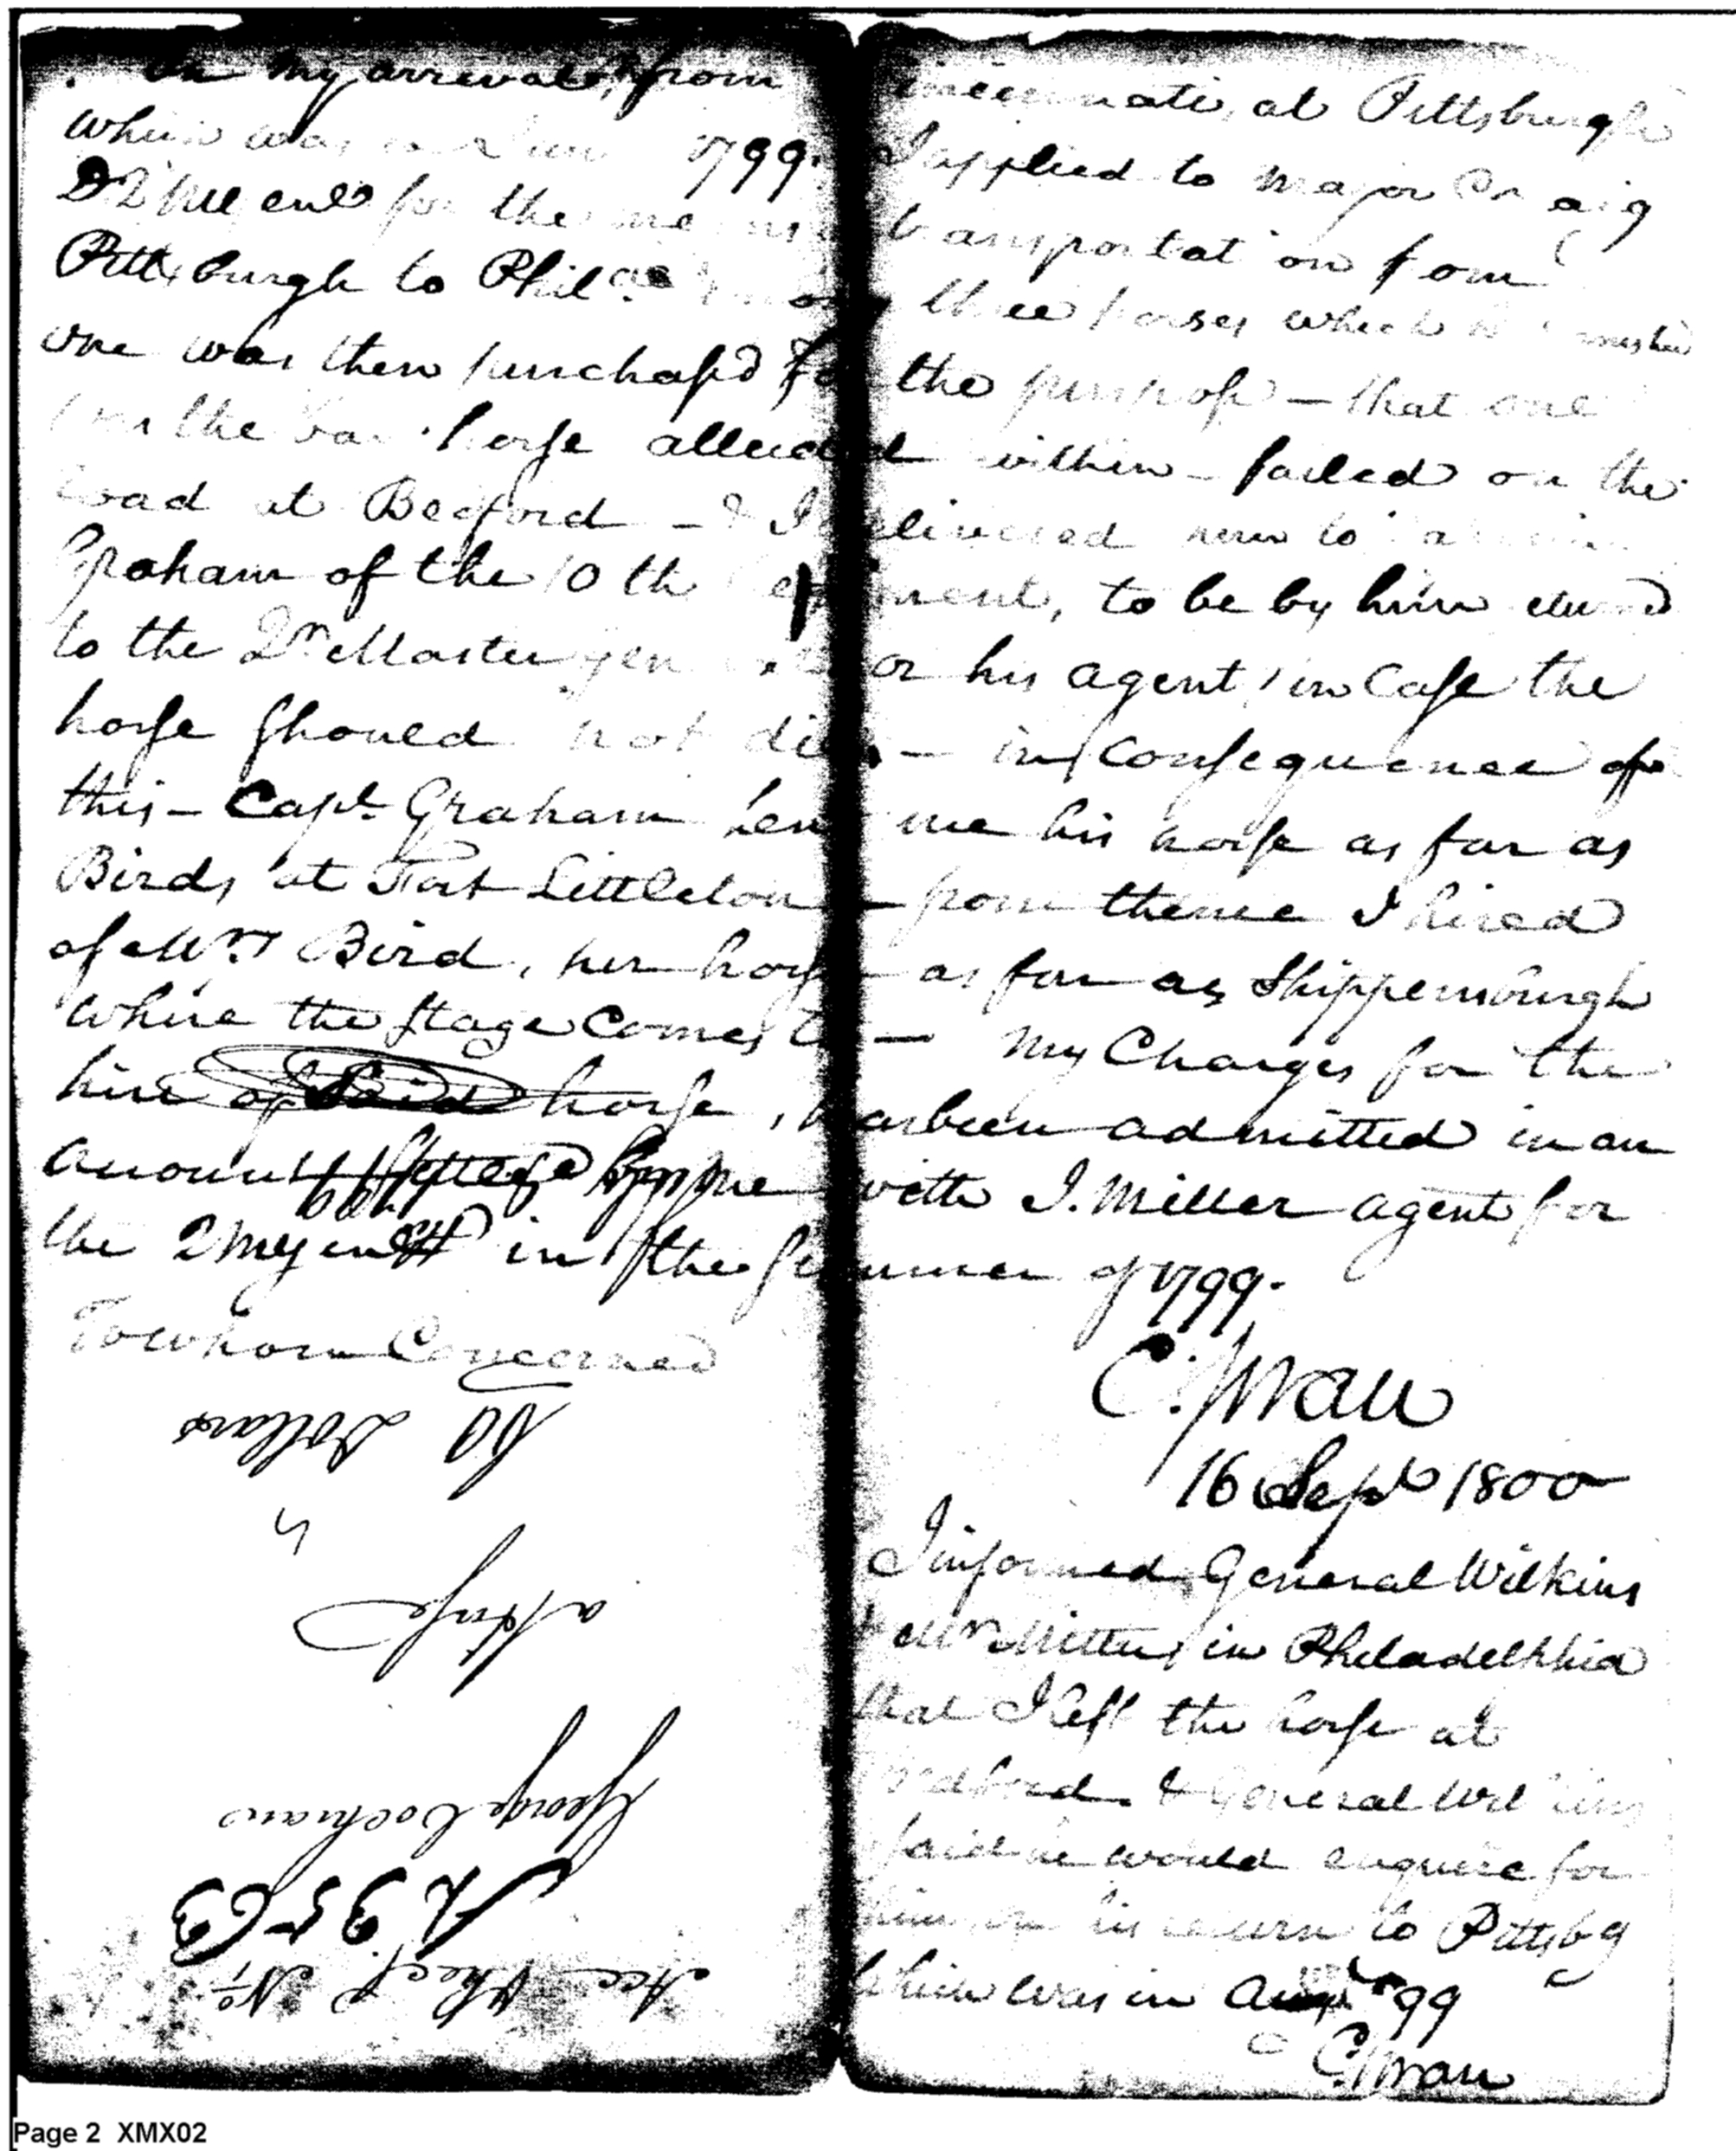 On my arrival, from Cincinnati, at Pittsburgh
which was in June 1799. I applied to Major Craig
for the means transportation from
Pittsburgh to Phila. three horses which
one was then purchasd for the purpose — that one
the bay horse alluded within — failed on the
road at Bedford — & I delivered him to
Graham of the 10th Regiment, to be by him
to the Qr Master general or his agent, in Case the
horse should not die — in Consequence of
this — Capt. Graham lent me his horse as far as
Birds at Fort Littleton — from thence I hired
of Mrs Bird, her horse as far as Shippensburgh
where the Stage Comes to — My Charges for the
hire of said horse, has been admitted in an
account settled by me with J. Miller agent for
the in the Summer of 1799.
To whom Concerned
C. Swan
16 Sept 1800
I informed General Wilkins
& Mr Miller, in Philadelphia
that I left the horse at
Bedford. & General Wilkins
said he would enquire for
him on his return to Pittsbg
which was in Augt 99
C. Swan
60 Dollars
a Horse
George Cochran
Acc Rect No.